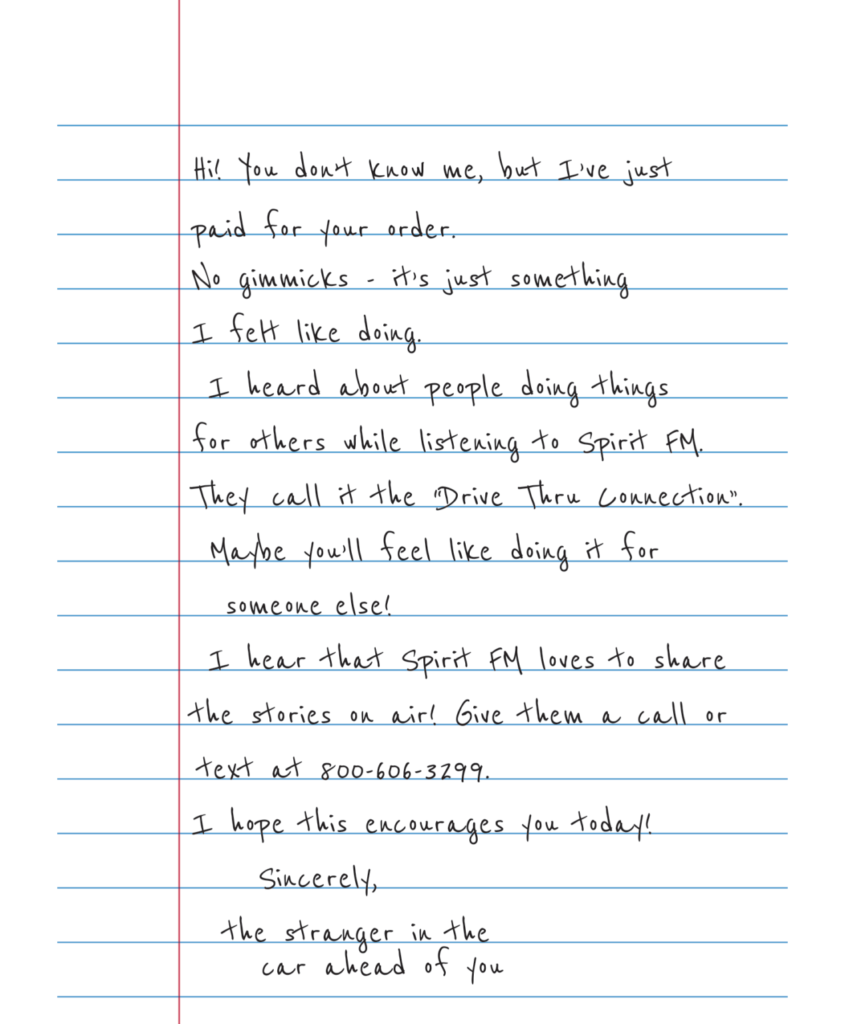 Hi! You don't know me, but I've just
paid for your order.
No gimmicks - it's just something
I felt like doing.
I heard about people doing things
for others while listening to Spirit FM.
They call it the "Drive Thru Connection".
Maybe you'll feel like doing it for
someone else!
I hear that Spirit FM loves to share
the stories on air! Give them a call or
text at 800-606-3299.
I hope this encourages you today!
Sincerely,
the stranger in the
car ahead of you